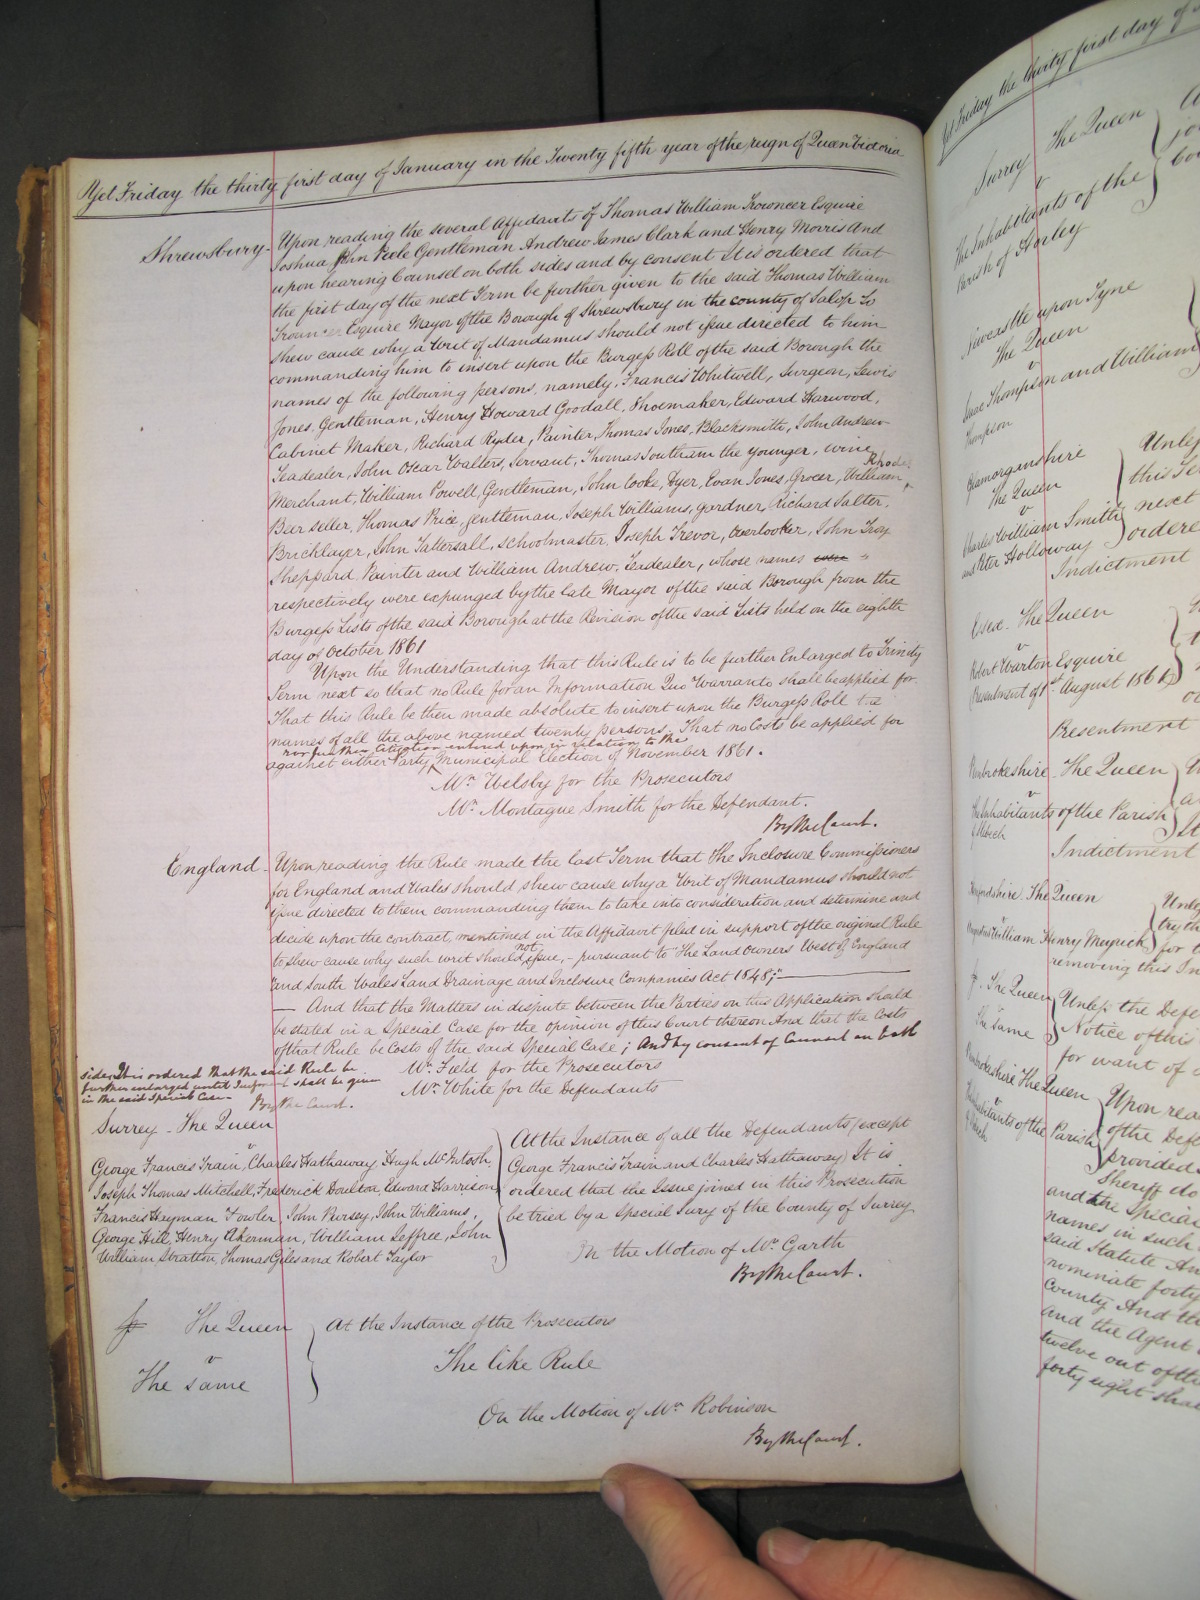 Yet Friday the thirty first day of January in the Twenty fifth year of the reign of Queen Victoria
Shrewsbury - Upon reading the several Affidavits of Thomas William Trouncer Esquire
Joshua John Peele Gentleman Andrew James Clark and Henry Morris And
upon hearing Counsel on both sides and by consent It is ordered that
the first day of the next Term be further given to the said Thomas William
Trouncer Esquire Mayor of the Borough of Shrewsbury in the county of Salop to
shew cause why a Writ of Mandamus should not issue directed to him
commanding him to insert upon the Burgess Roll of the said Borough the
names of the following persons, namely, Francis Whitwell, Surgeon, Lewis
Jones, Gentleman, Henry Howard Goodall, Shoemaker, Edward Harwood,
Cabinet Maker, Richard Ryder, Painter, Thomas Jones, Blacksmith, John Andrew
Teadealer, John Oscar Walters, Servant, Thomas Southam the younger, Wine
Merchant, William Powell, Gentleman, John Cooke, Dyer, Evan Jones, Grocer, William Rhodes
Bar seller, Thomas Price, gentleman, Joseph Williams, gardner, Richard Salter,
Bricklayer, John Tattersall, Schoolmaster, Joseph Trevor, Overlooker, John Troy
Sheppard Painter and William Andrew, Teadealer, whose names were
respectively were expunged by the late Mayor of the said Borough from the
Burgess Lists of the said Borough at the Revision of the said Lists held on the eighth
day of October 1861
Upon the Understanding that this Rule is to be further Enlarged to Trinity
Term next so that no Rule for an Information Quo Warranto shall be applied for
That this Rule be then made absolute to insert upon the Burgess Roll the
names of all the above named twenty persons That no Costs be applied for
nor further litigation entered upon in relation to the
against either Party Municipal Election of November 1861.
Mr. Welsby for the Prosecutors
Mr. Montague Smith for the Defendant.
By the Court.
England - Upon reading the Rule made the last Term that the Inclosure Commissioners
for England and Wales should shew cause why a Writ of Mandamus should not
issue directed to them commanding them to take into consideration and determine and
decide upon the contract, mentioned in the Affidavit filed in support of the original Rule
to shew cause why such writ should not issue, - pursuant to "The Land Owners West of England
and South Wales Land Drainage and Inclosure Companies Act 1848;"
And that the Matters in dispute between the Parties on this Application should
be stated in a Special Case for the opinion of this Court thereon And that the Costs
of that Rule be Costs of the said Special Case; And by consent of Counsel on both
sides, It is ordered that the said Rule be
further enlarged until Judgment shall be given
in the said Special Case.
By the Court.
Mr. Field for the Prosecutors
Mr. White for the Defendants
Surrey - The Queen
v
George Francis Train, Charles Hathaway, Hugh McIntosh
Joseph Thomas Mitchell, Frederick Doulton, Edward Harrison
Francis Heyman Fowler, John Pursey, John Williams,
George Hill, Henry Akerman, William Jeffree, John
William Stratton, Thomas Giles and Robert Taylor
At the Instance of all the Defendants (except
George Francis Train and Charles Hathaway) It is
ordered that the Issue joined in this Prosecution
be tried by a Special Jury of the County of Surrey
On the Motion of Mr. Garth
By the Court.
The Queen
v
The same
At the Instance of the Prosecutors
The like Rule
On the Motion of Mr. Robinson
By the Court.
Yet Friday the thirty first day of
Surrey The Queen
v
The Inhabitants of the
Parish of Horley
Newcastle upon Tyne
The Queen
v
Isaac Thompson and William
Thompson
Glamorganshire
The Queen
v
Charles William Smith
and Peter Holloway
Unless
this Te
next
ordere
Indictment
Essex - The Queen
v
Robert Warton Esquire
Presentment of 1st August 1861
Presentment
Pembrokeshire - The Queen
v
The Inhabitants of the Parish
Indictment
The Queen
v
William Henry Meyrick
Unless
try th
for t
removing this In
The Queen
v
The same
Unless the Defe
Notice of this
for want of
Pembrokeshire The Queen
v
Inhabitants of the Parish
Upon rea
of the Defe
provided
Sheriff do
and the Special
names in such
said Statute An
nominate forty
County And the
and the Agent
twelve out of the
forty eight shal